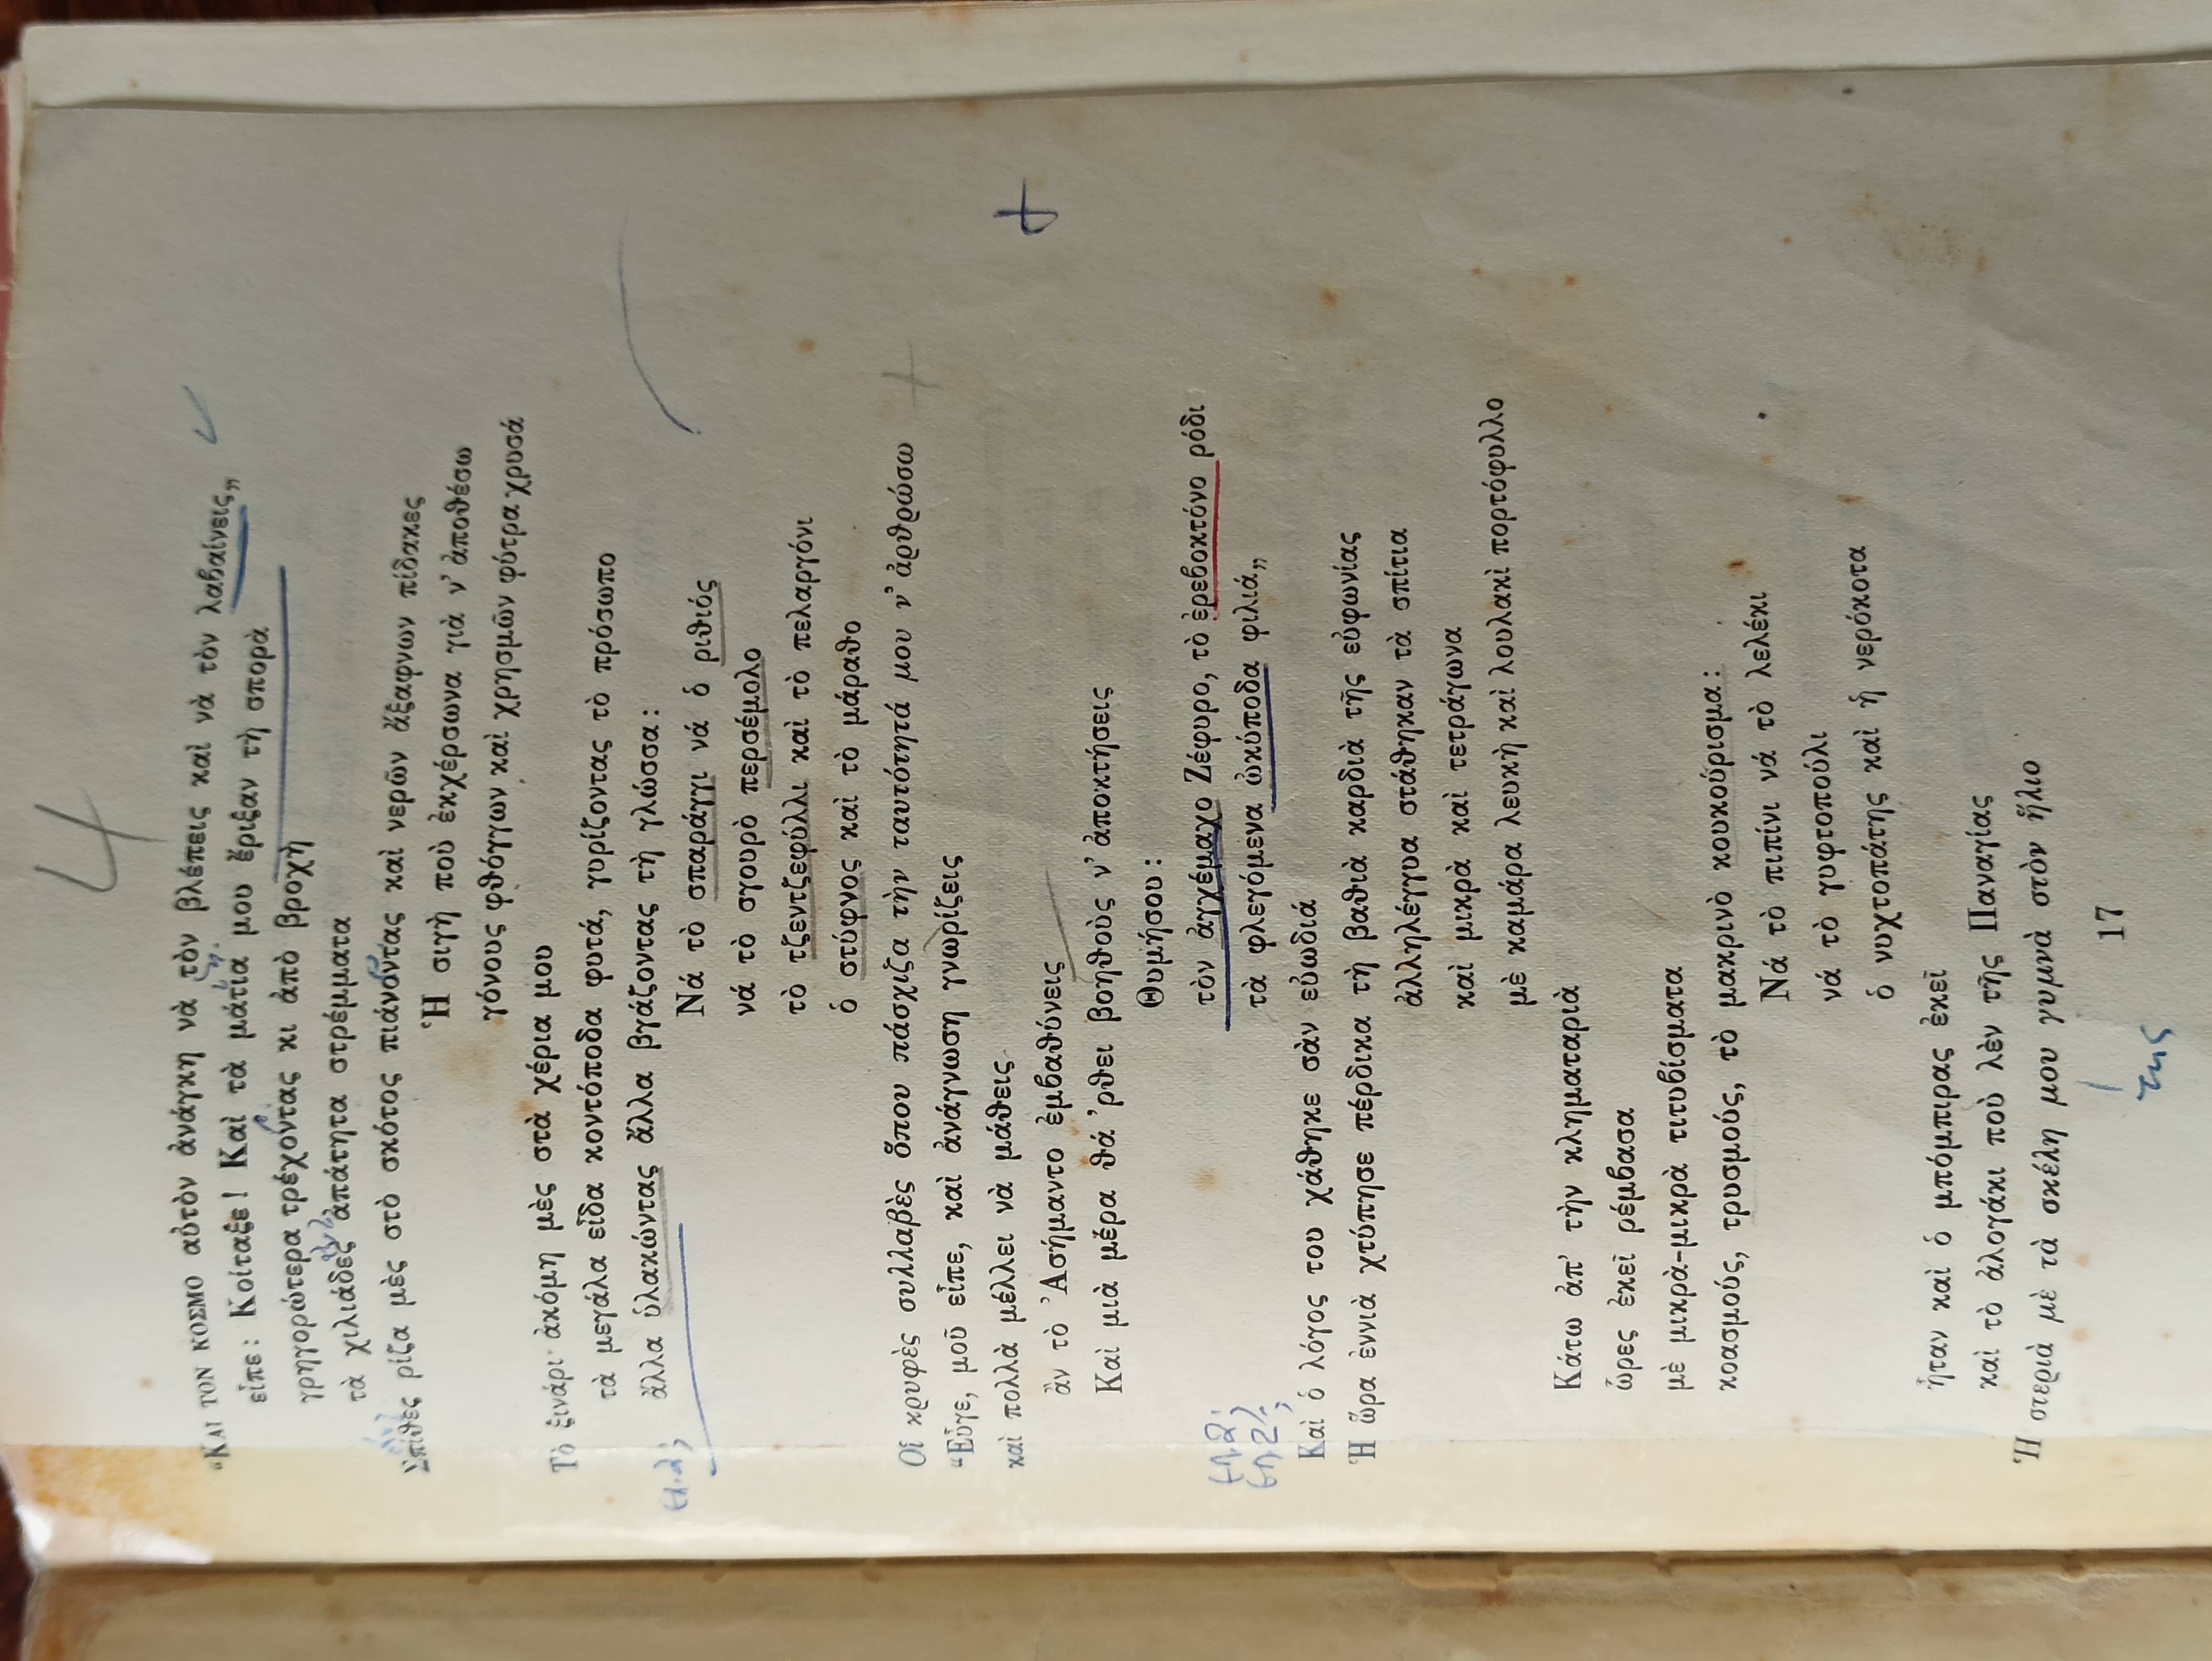 4
“ΚΑΙ ΤΟΝ ΚΟΣΜΟ αὐτὸν ἀνάγκη νὰ τὸν βλέπεις καὶ νὰ τὸν λαβαίνεις„
εἶπε: Κοίταξε! Καὶ τὰ μάτια μου ἔριξαν τὴ σπορὰ
γρηγορώτερα τρέχοντας κι ἀπὸ βροχὴ
τὰ χιλιάδες ἀπάτητα στρέμματα
Σπίθες ρίζα μὲς στὸ σκότος πιάνοντας καὶ νερῶν ἄξαφνων πίδακες
Ἡ σιγὴ ποὺ ἐκχέρσωνα γιὰ ν’ ἀποθέσω
γόνους φθόγγων καὶ χρησμῶν φύτρα χρυσά
Τὸ ξινάρι ἀκόμη μὲς στὰ χέρια μου
τὰ μεγάλα εἶδα κοντόποδα φυτά, γυρίζοντας τὸ πρόσωπο
ἄλλα ὑλακώντας ἄλλα βγάζοντας τὴ γλώσσα:
Νά τὸ σπαράγγι νά ὁ ριθιός
νά τὸ σγουρὸ περσέμολο
τὸ τζεντζεφύλλι καὶ τὸ πελαργόνι
ὁ στύφνος καὶ τὸ μάραθο
Οἱ κρυφὲς συλλαβὲς ὅπου πάσχιζα τὴν ταυτότητά μου ν’ ἀρθρώσω
“Εὖγε, μοῦ εἶπε, καὶ ἀνάγνωση γνωρίζεις
καὶ πολλὰ μέλλει νὰ μάθεις
ἂν τὸ Ἀσήμαντο ἐμβαθύνεις
Καὶ μιὰ μέρα θά ’ρθει βοηθοὺς ν’ ἀποκτήσεις
Θυμήσου:
τὸν ἀγχέμαχο Ζέφυρο, τὸ ἐρεβοκτόνο ρόδι
τὰ φλεγόμενα ὠκύποδα φιλιά„
Καὶ ὁ λόγος του χάθηκε σὰν εὐωδιά
Ἡ ὥρα ἐννιὰ χτύπησε πέρδικα τὴ βαθιὰ καρδιὰ τῆς εὐφωνίας
ἀλληλέγγυα στάθηκαν τὰ σπίτια
καὶ μικρὰ καὶ τετράγωνα
μὲ καμάρα λευκὴ καὶ λουλακὶ πορτόφυλλο
Κάτω ἀπ’ τὴν κληματαριὰ
ὧρες ἐκεῖ ρέμβασα
μὲ μικρὰ-μικρὰ τιτυβίσματα
κοασμούς, τρυσμούς, τὸ μακρινὸ κουκούρισμα:
Νά τὸ πιπίνι νά τὸ λελέκι
νά τὸ γυφτοπούλι
ὁ νυχτοπάτης καὶ ἡ νερόκοτα
ἦταν καὶ ὁ μπόμπιρας ἐκεῖ
καὶ τὸ ἀλογάκι ποὺ λὲν τῆς Παναγίας
Ἡ στεριὰ μὲ τὰ σκέλη μου γυμνὰ στὸν ἥλιο
17
της